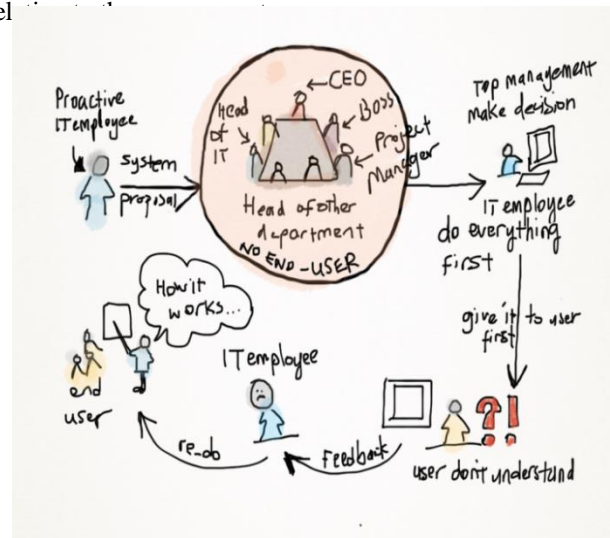 Proactive
IT employee
system
proposal
CEO
Head
of
IT
Boss
Project
Manager
Head of other
department
NO END-USER
Top management
make decision
IT employee
do everything
first
give it to user
first
?!
user don't understand
Feedback
IT employee
re-do
How it
works...
end
user